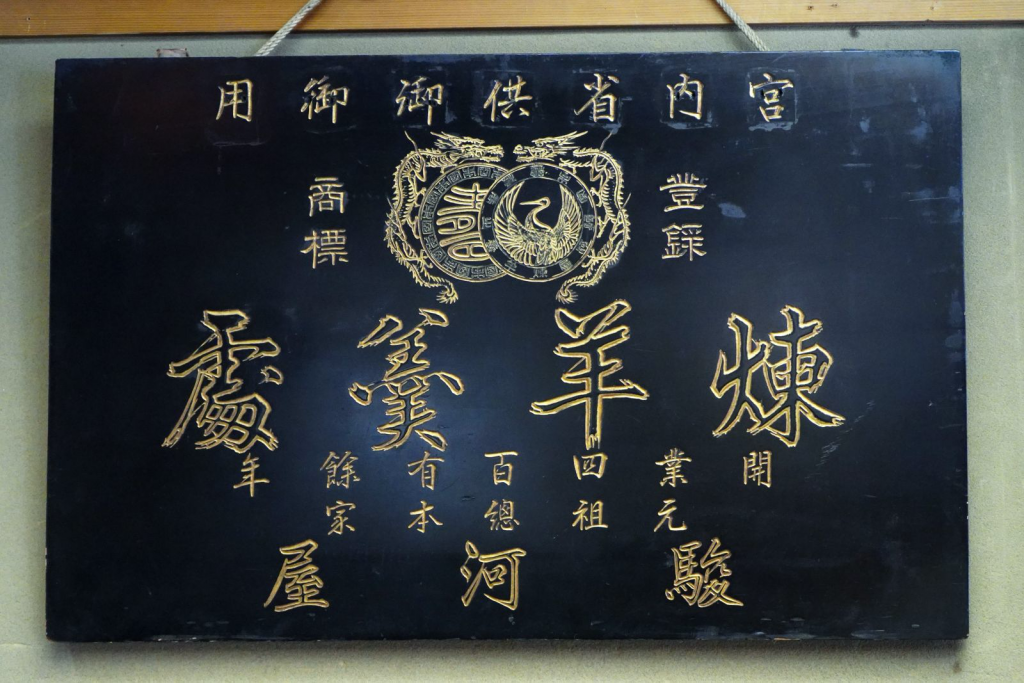 宮内省供御御用
登録
商標
煉羊羹處
開業四百有餘年
元祖總本家
駿河屋